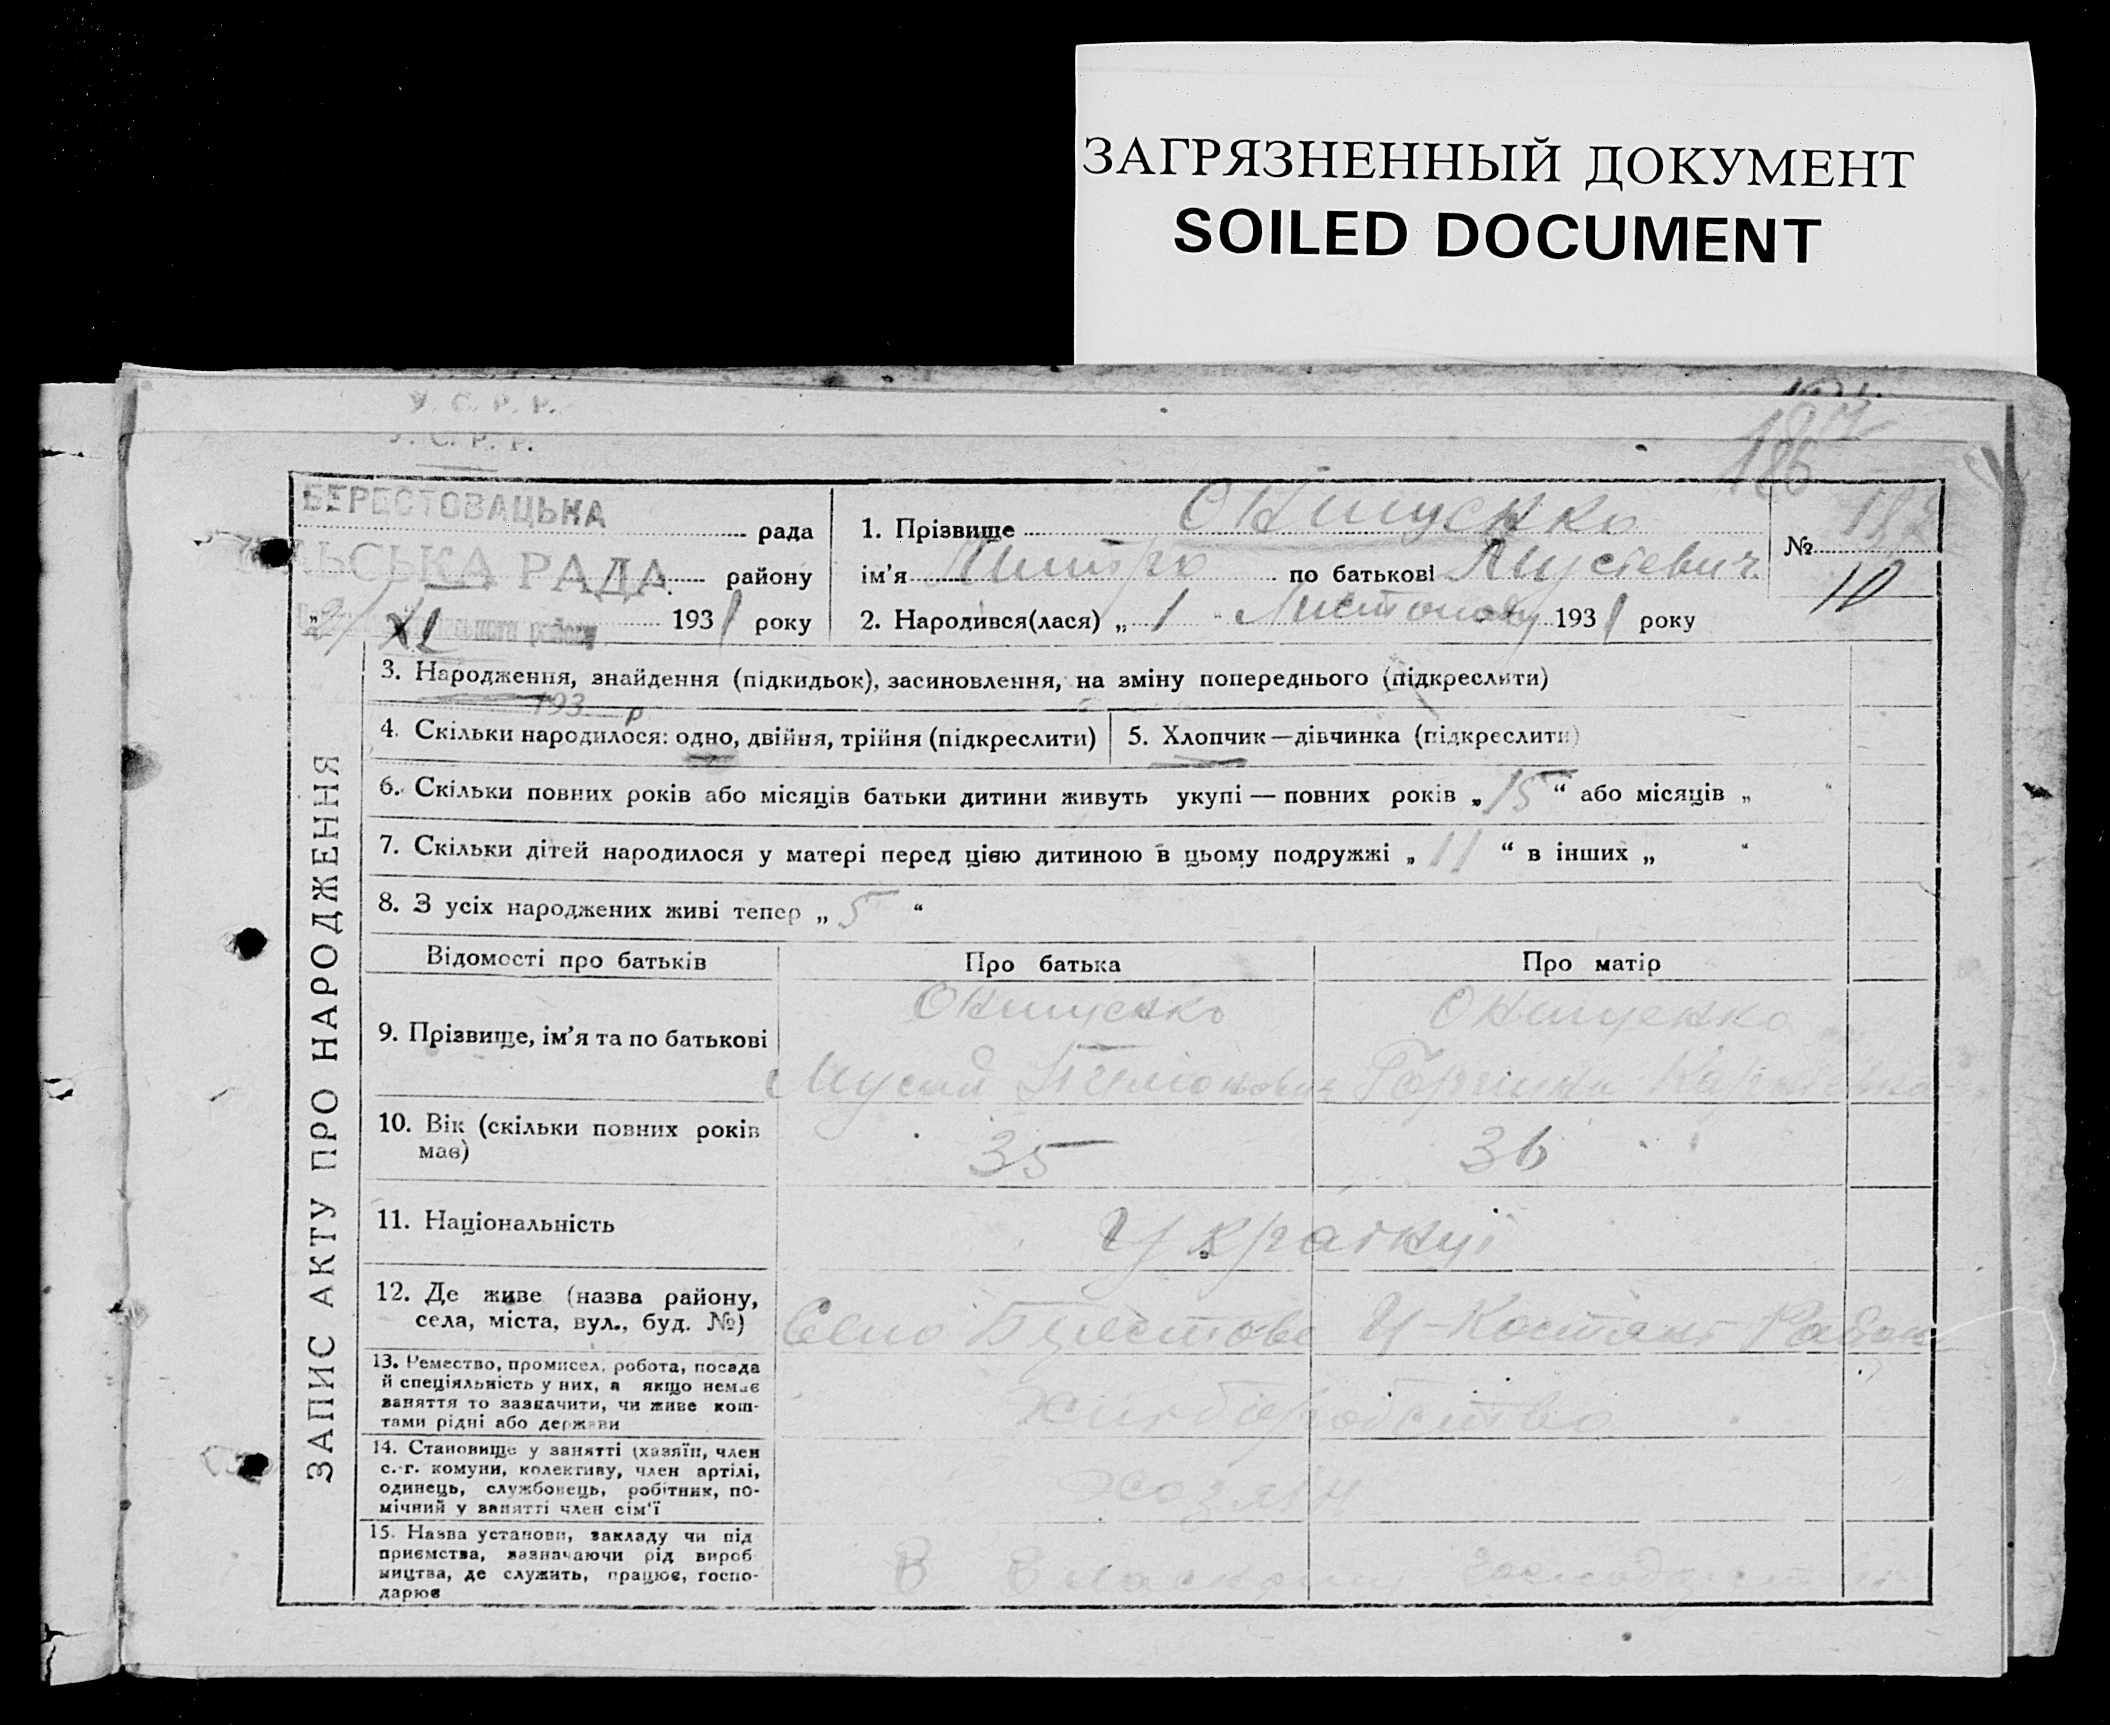 ЗАГРЯЗНЕННЫЙ ДОКУМЕНТ
SOILED DOCUMENT
У. С. Р. Р.
У. С. Р. Р.
187
186
БЕРЕСТОВАЦЬКА рада
ЛЬСЬКА РАДА району
„2/XI 1931 року
1. Прізвище Онищенко
ім'я Дмитро по батькові Мусієвич
2. Народився(лася) „1 Листопаду 1931 року
№ 182
10
ЗАПИС АКТУ ПРО НАРОДЖЕННЯ
3. Народження, знайдення (підкидьок), засиновлення, на зміну попереднього (підкреслити)
193 р
4. Скільки народилося: одно, двійня, трійня (підкреслити)
5. Хлопчик—дівчинка (підкреслити)
6. Скільки повних років або місяців батьки дитини живуть укупі — повних років „15“ або місяців „ “
7. Скільки дітей народилося у матері перед цією дитиною в цьому подружжі „11“ в інших „ “
8. З усіх народжених живі тепер „5“
Відомості про батьків Про батька Про матір
9. Прізвище, ім'я та по батькові
Онищенко Онищенко
Мусій
10. Вік (скільки повних років
має)
35 36
11. Національність
Украінці
12. Де живе (назва району,
села, міста, вул., буд. №)
Село Берестове Ч-Костянт Район
13. Ремество, промисел, робота, посада
й спеціяльність у них, а якщо немає
заняття то зазначити, чи живе кош-
тами рідні або держави
хліборобство
14. Становище у занятті (хазяїн, член
с.-г. комуни, колективу, член артілі,
одинець, службовець, робітник, по-
мічний у занятті член сім'ї
хозяін
15. Назва установи, закладу чи під
приємства, зазначаючи рід вироб
ництва, де служить, працює, госпо-
дарює
В власному господарстві